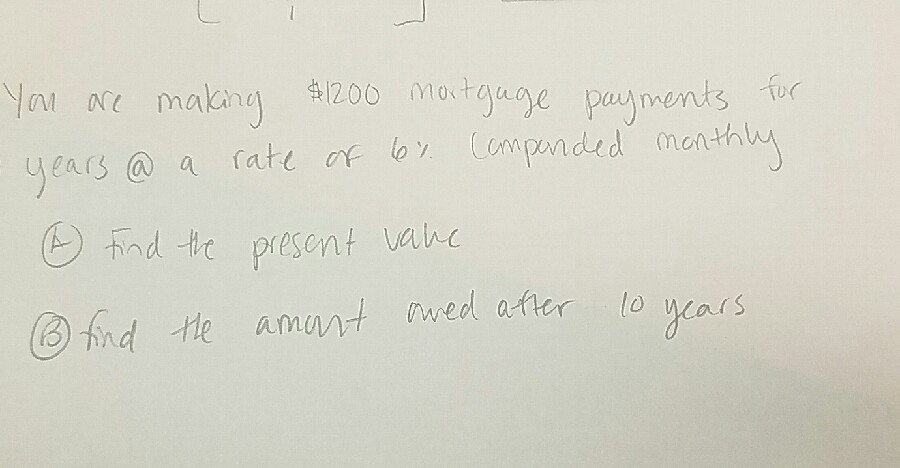 You are making $1200 mortgage payments for
years @ a rate of 6% Compounded monthly
(A) Find the present value
(B) find the amount owed after 10 years